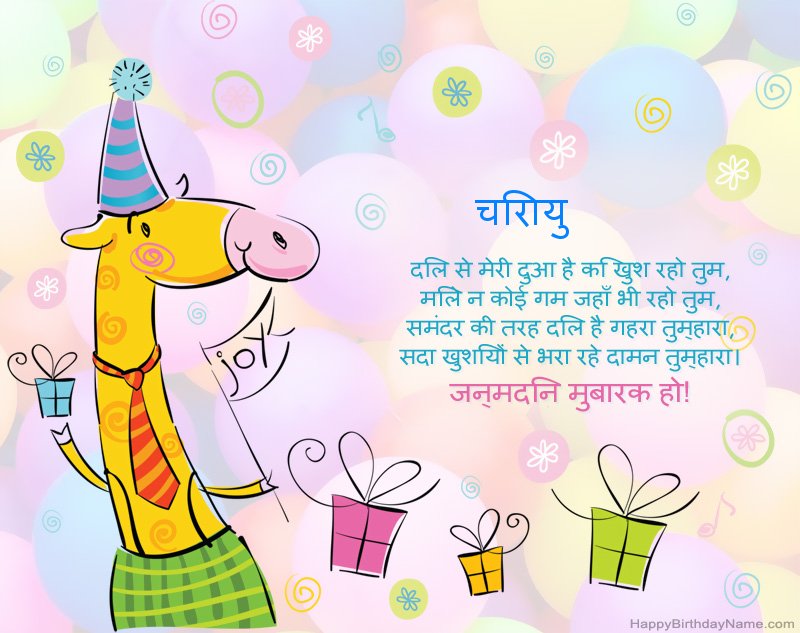 चिरायु
दिल से मेरी दुआ है कि खुश रहो तुम,
मिले न कोई गम जहाँ भी रहो तुम,
समंदर की तरह दिल है गहरा तुम्हारा,
सदा खुशियों से भरा रहे दामन तुम्हारा।
जन्मदिन मुबारक हो!
joy
HappyBirthdayName.com